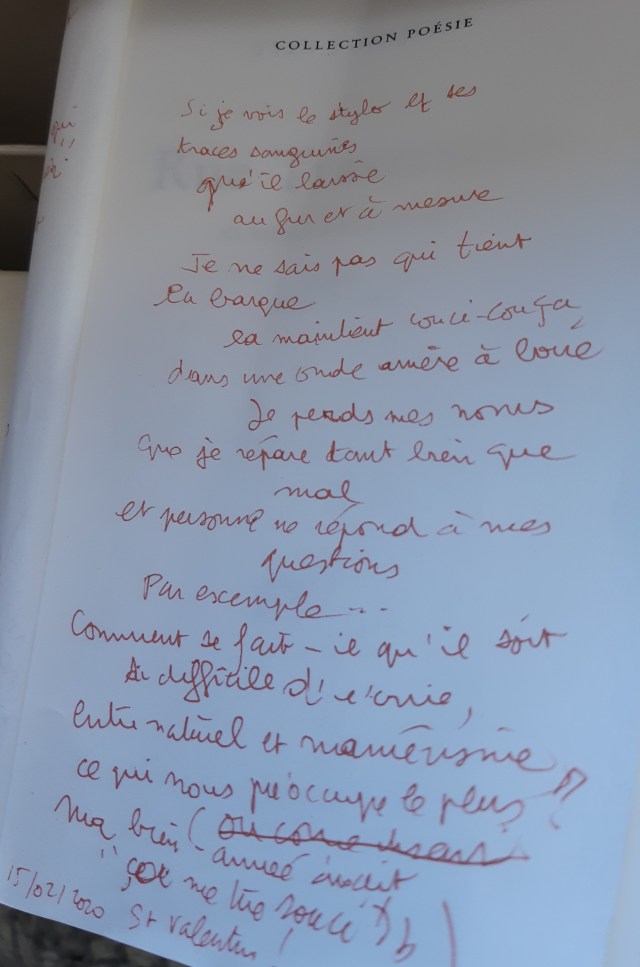 COLLECTION POÉSIE
Si je vois le stylo et ses
traces sanguines
qu'il laisse
au fur et à mesure
Je ne sais pas qui tient
la barque
la maintient couci-couça
dans une onde amère à
Je perds mes
que je répare tant bien que
mal
et personne ne répond à mes
questions
Par exemple...
Comment se fait-il qu'il soit
si difficile d'écrire,
entre naturel et maniérisme
ce qui nous préoccupe le plus ?
Ma bien (
aimée dirait
" ça me
15/02/2020 St Valentin !
qui